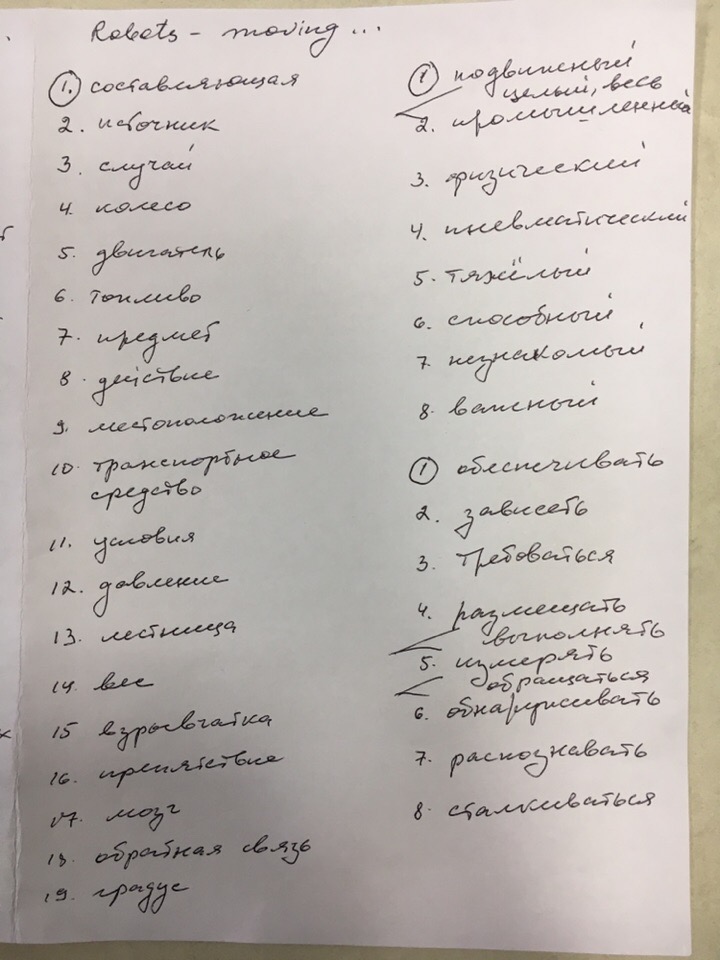 Robots - moving ...
1. составляющая
2. источник
3. случай
4. колесо
5. двигатель
6. топливо
7. предмет
8. действие
9. местоположение
10. транспортное
средство
11. условия
12. давление
13. лестница
14. вес
15 взрывчатка
16. препятствие
17. мозг
18. обратная связь
19. градус
1 подвижный
целый, весь
2. промышленный
3. физический
4. пневматический
5. тяжёлый
6. способный
7. незнакомый
8. важный
1 обеспечивать
2. зависеть
3. требоваться
4. размещать
выполнять
5. измерять
обращаться
6. обнаруживать
7. распознавать
8. сталкиваться